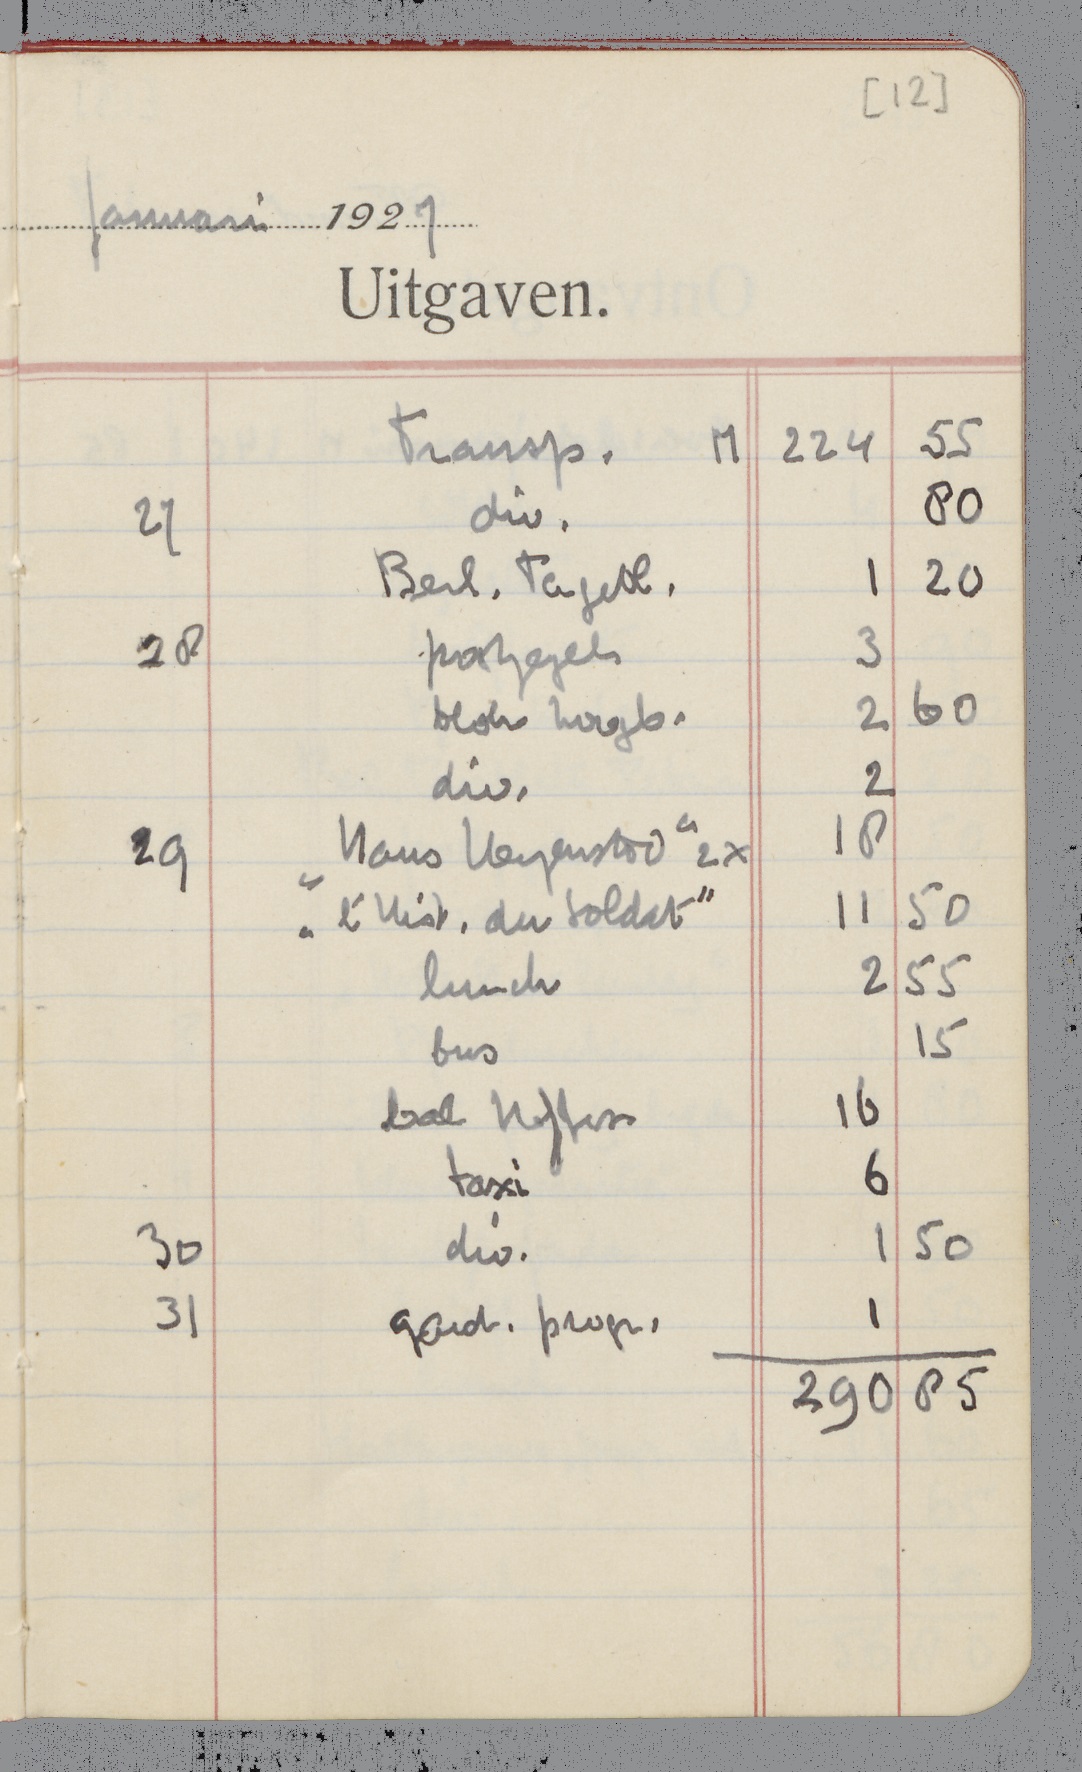 [12]
Januari 1927
Uitgaven.
Transp. M 224 55
27 div. 80
Berl. Tagebl. 1 20
28 postzegels 3
2 60
div. 2
29 "Haus Herzenstod" 2x 18
"L'Hist. du Soldat" 11 50
lunch 2 55
bus 15
bal 16
taxi 6
30 div. 1 50
31 gard. progr. 1
290 85